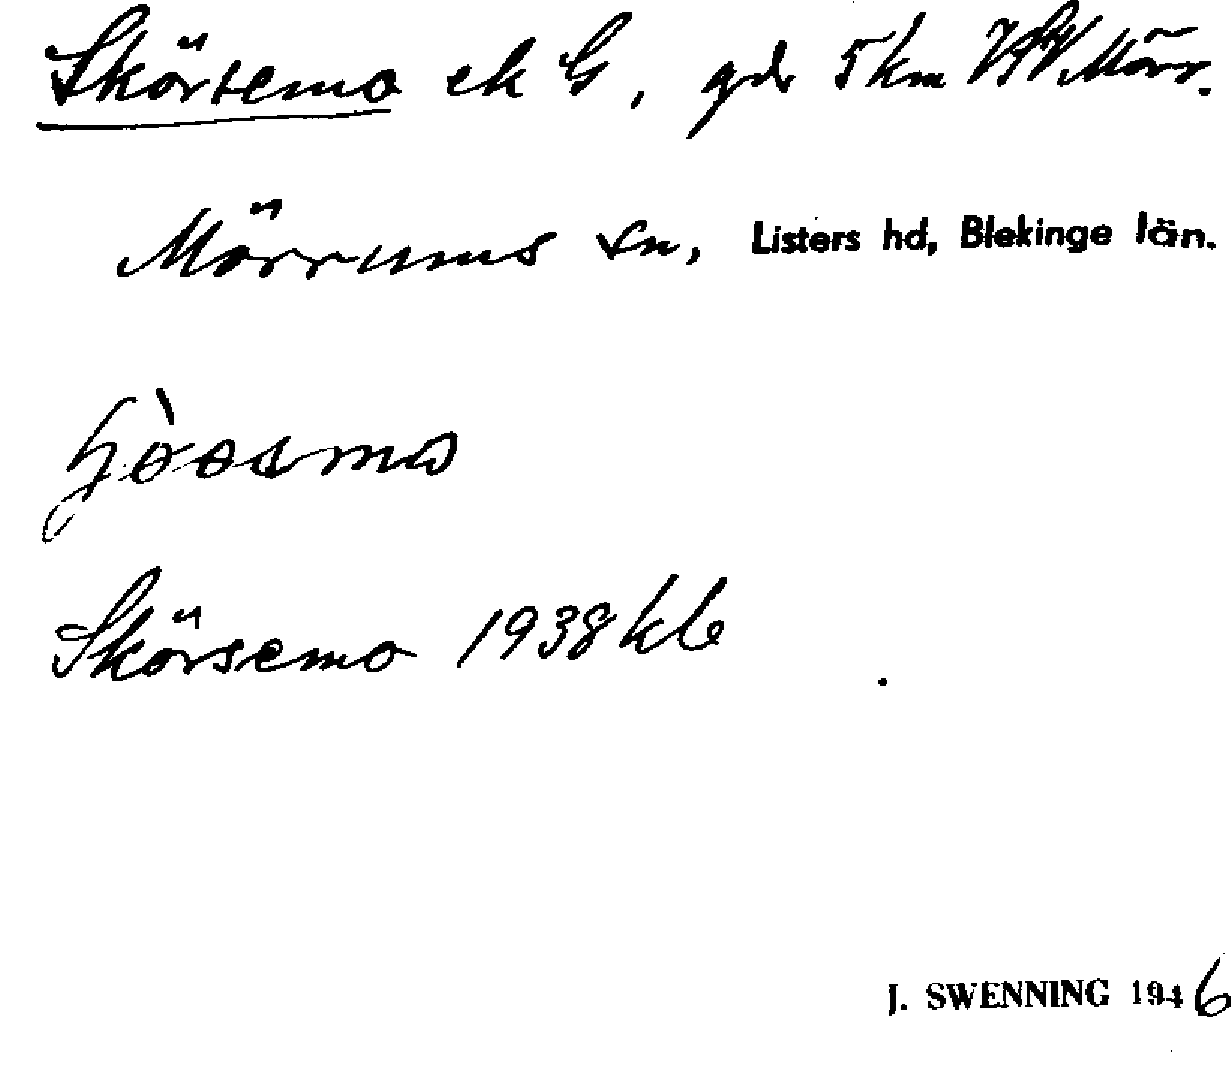 Skörsemo ek G, gdr 5 km VSV Mörr.
Mörrums sn, Listers hd, Blekinge län.
Skörsemo 1938 kb
J. SWENNING 1946